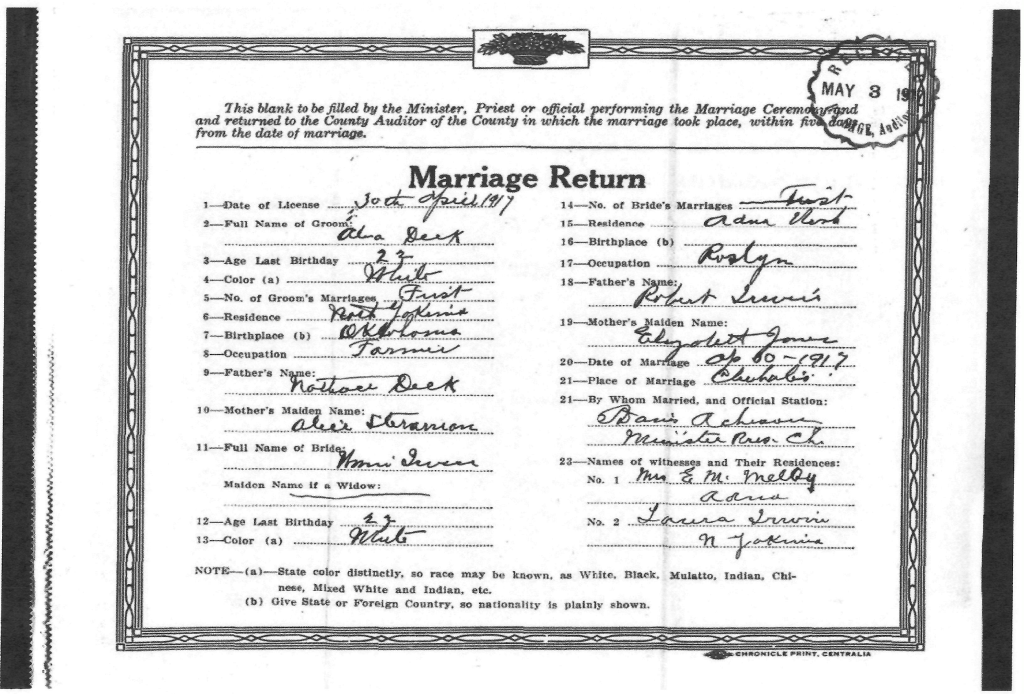 RECEIVED
MAY 3 1917
Auditor
This blank to be filled by the Minister, Priest or official performing the Marriage Ceremony and
and returned to the County Auditor of the County in which the marriage took place, within five days
from the date of marriage.
Marriage Return
1—Date of License 30th April 1917
2—Full Name of Groom:
Alva Deck
3—Age Last Birthday 22
4—Color (a) White
5—No. of Groom's Marriages First
6—Residence North Yakima
7—Birthplace (b) Oklahoma
8—Occupation Farmer
9—Father's Name:
Deck
10—Mother's Maiden Name:
Alice
11—Full Name of Bride
Irwin
Maiden Name if a Widow:
12—Age Last Birthday 22
13—Color (a) White
14—No. of Bride's Marriages First
15—Residence Adna Wash
16—Birthplace (b)
17—Occupation Roslyn
18—Father's Name:
Robert Irwin
19—Mother's Maiden Name:
Elizabeth Jones
20—Date of Marriage Ap 30-1917
21—Place of Marriage Chehalis
21—By Whom Married, and Official Station:
Minister Pres. Ch.
23—Names of witnesses and Their Residences:
No. 1 Mrs E. M. Melby
Adna
No. 2 Laura Irwin
N Yakima
NOTE—(a)—State color distinctly, so race may be known, as White, Black, Mulatto, Indian, Chi-
nese, Mixed White and Indian, etc.
(b) Give State or Foreign Country, so nationality is plainly shown.
CHRONICLE PRINT, CENTRALIA